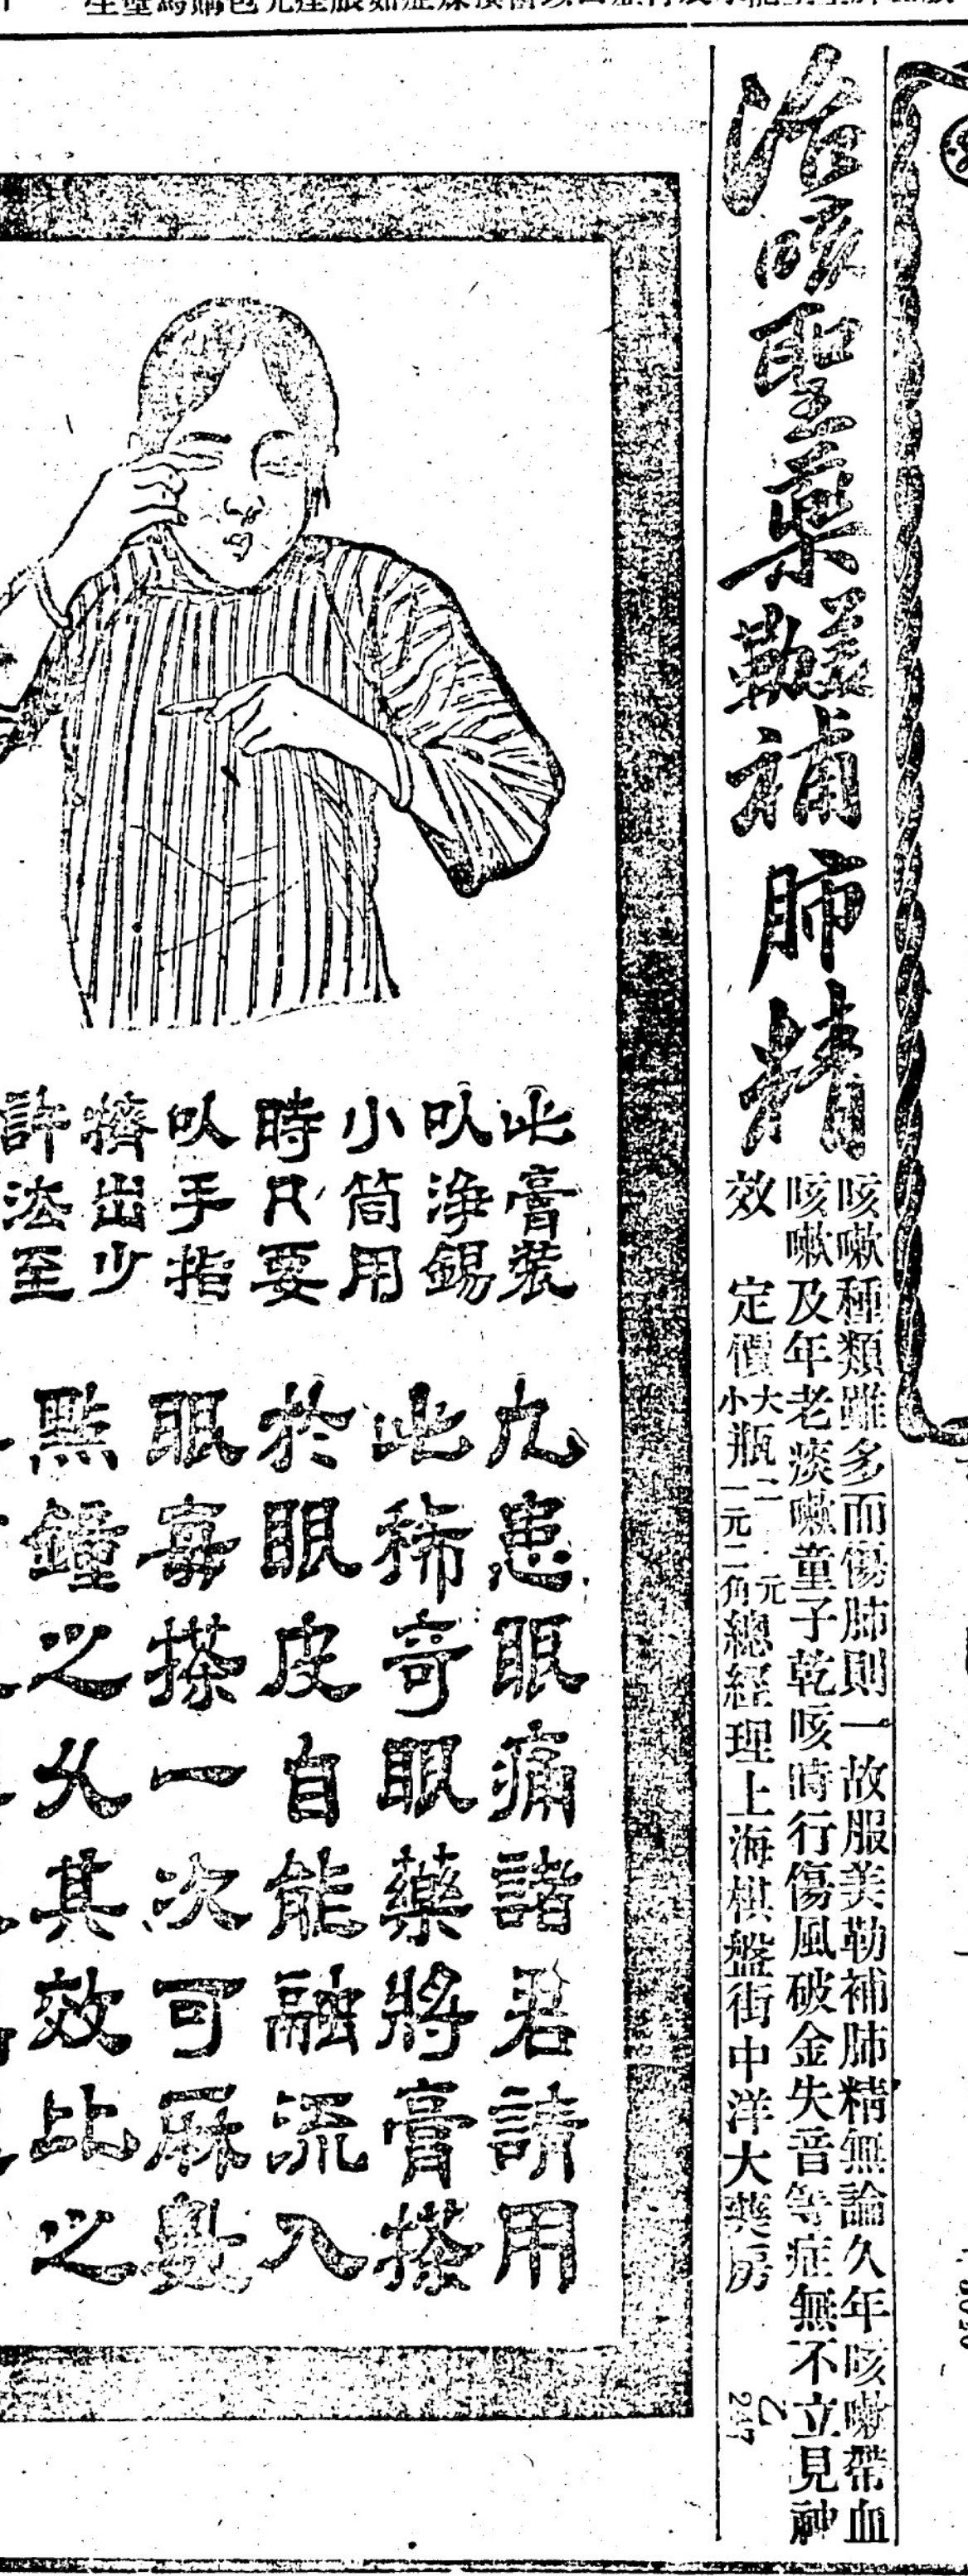 治咳聖藥美勒補肺精
咳嗽種類雖多而傷肺則一故服美勒補肺精無論久年咳嗽帶血
咳嗽及年老痰嗽童子乾咳時行傷風破金失音等症無不立見神
效 定價大瓶二元小瓶一元二角總經理上海棋盤街中洋大藥房
乙
247
此膏裝
以淨錫
小筒用
時只要
以手指
擠出少
許法至
凡患眼痛諸君請用
此稀奇眼藥將膏搽
於眼皮自能融流入
眼毒搽一次可麻數
點鐘之久其效比之